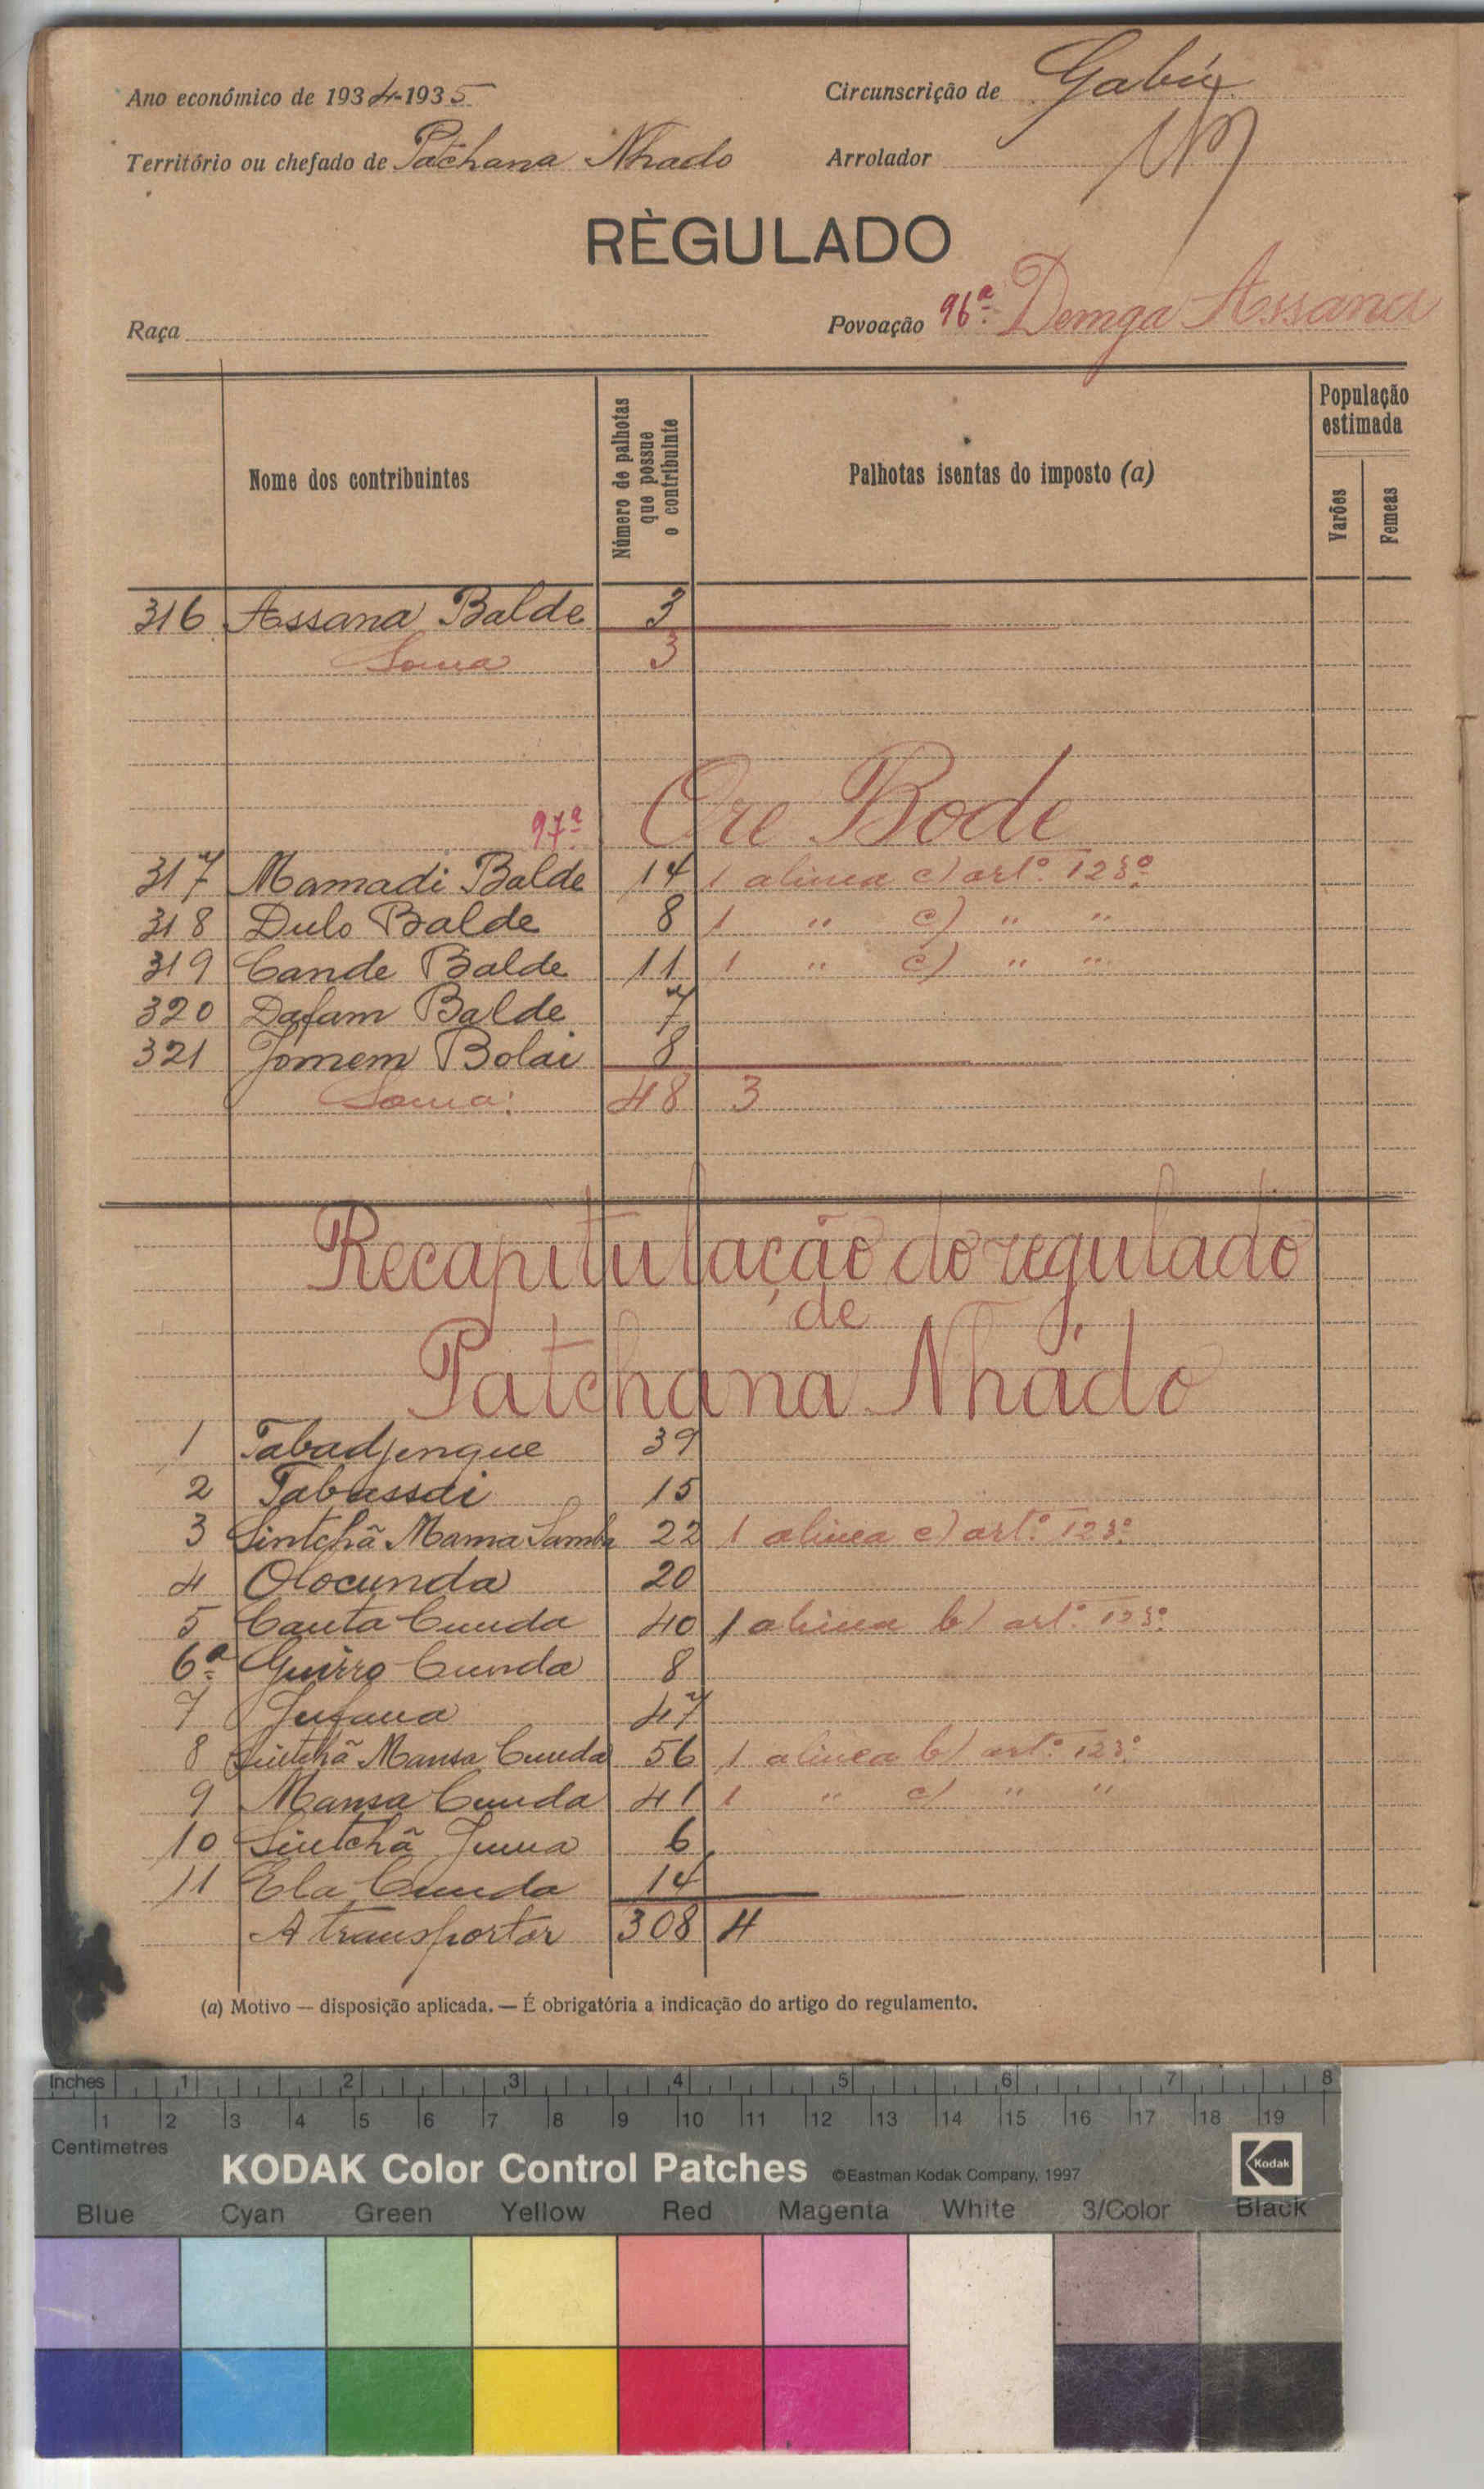 Ano económico de 1934-1935 Circunscrição de Gabú
Território ou chefado de Patchana Nhado Arrolador
RÈGULADO
Raça Povoação 96ª Demga Assana
Nome dos contribuintes Número de palhotas que possue o contribuinte Palhotas isentas do imposto (a) População estimada Varões Femeas
316 Assana Balde 3
Soma 3
97ª Ore Bode
317 Mamadi Balde 14 1 alinea c) artº 123º
318 Dulo Balde 8 1 " c) " "
319 Cande Balde 11 1 " c) " "
320 Dafam Balde 7
321 Jomem Bolai 8
Soma: 48 3
Recapitulação do regulado
de
Patchana Nhádo
1 Tabadjenque 39
2 Tabassai 15
3 Sintchã Mama Samba 22 1 alinea c) artº 123º
4 Olocunda 20
5 Canta Cunda 40 1 alinea b) artº 123º
6ª Guirro Cunda 8
7 Jufana 47
8 Sintchã Mansa Cunda 56 1 alinea b) artº 123º
9 Mansa Cunda 41 1 " c) " "
10 Sintchã Juma 6
11 Ela Cunda 14
A transportar 308 4
(a) Motivo — disposição aplicada. — É obrigatória a indicação do artigo do regulamento.
Inches 1 2 3 4 5 6 7 8
1 2 3 4 5 6 7 8 9 10 11 12 13 14 15 16 17 18 19
Centimetres
KODAK Color Control Patches ©Eastman Kodak Company, 1997 Kodak
Blue Cyan Green Yellow Red Magenta White 3/Color Black